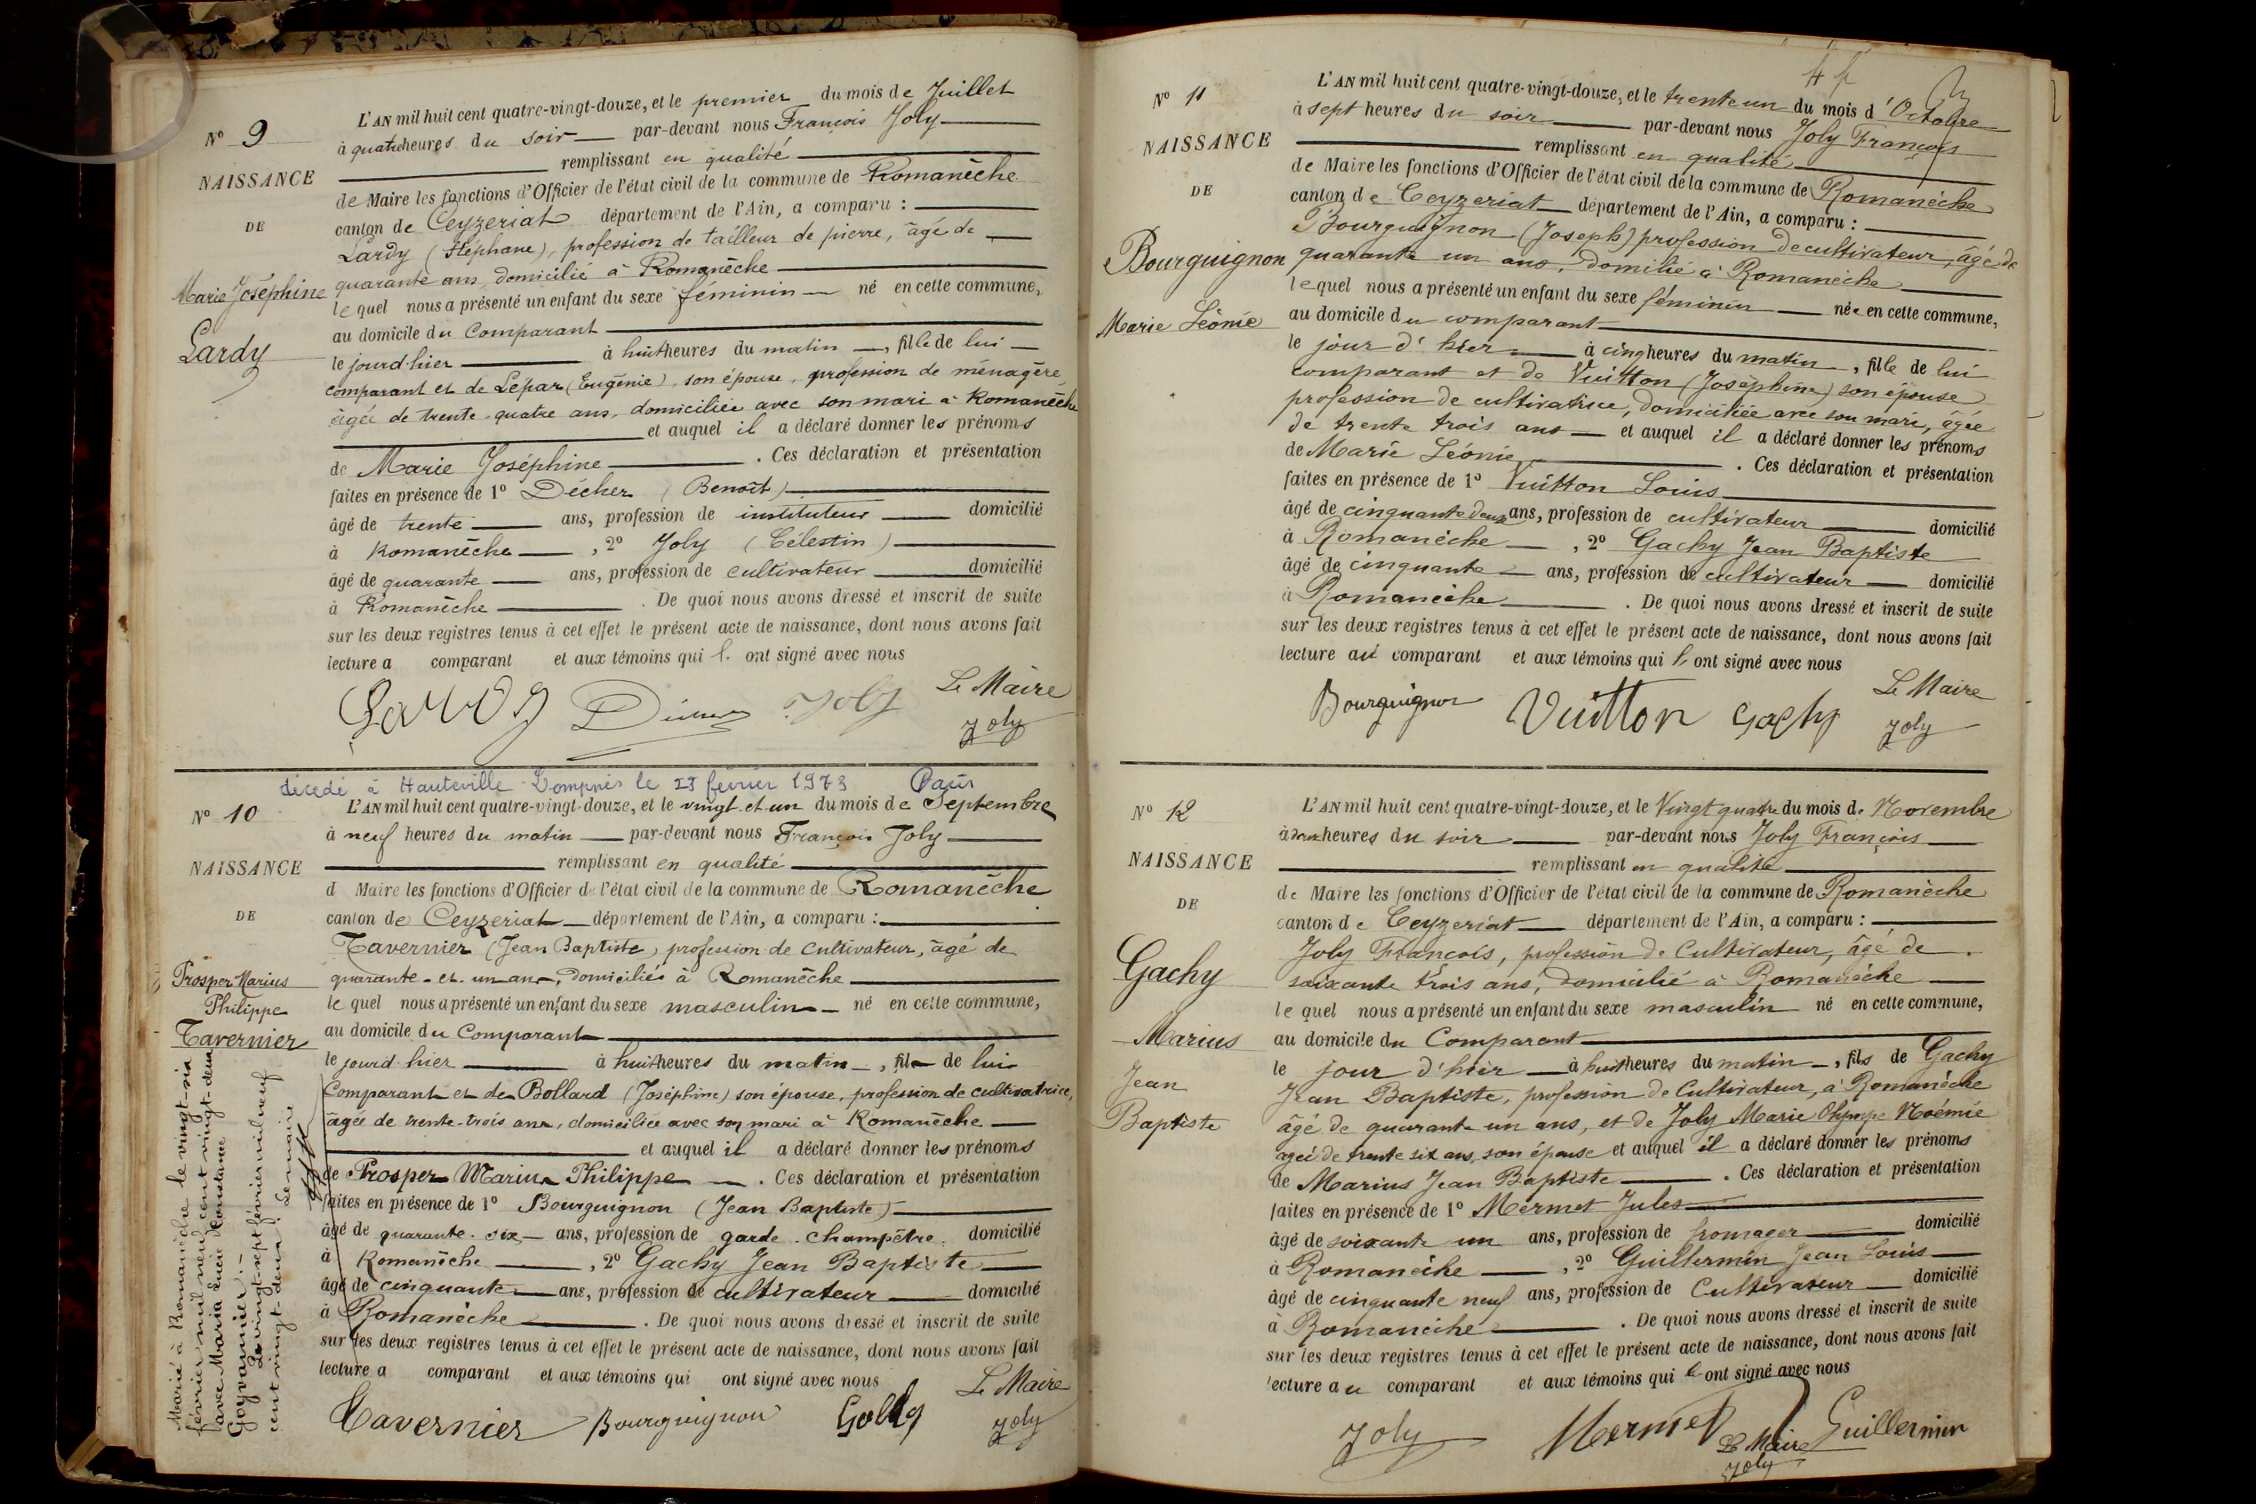 L'AN mil huit cent quatre-vingt-douze, et le premier du mois de Juillet
N° 9
à quatre heures du soir par-devant nous François Joly
remplissant en qualité
NAISSANCE
de Maire les fonctions d'Officier de l'état civil de la commune de Romanèche
DE
canton de Ceyzeriat département de l'Ain, a comparu :
Lardy (Stéphane), profession de tailleur de pierre, âgé de
Marie Joséphine
quarante ans, domicilié à Romanèche
le quel nous a présenté un enfant du sexe féminin né en cette commune,
Lardy
au domicile du Comparant
le jourd-hier à huit heures du matin, fille de lui
comparant et de Lepar (Eugénie), son épouse, profession de ménagère
âgée de trente-quatre ans, domiciliée avec son mari à Romanèche
et auquel il a déclaré donner les prénoms
de Marie Joséphine. Ces déclaration et présentation
faites en présence de 1° Décher (Benoît)
âgé de trente ans, profession de instituteur domicilié
à Romanèche, 2° Joly (Célestin)
âgé de quarante ans, profession de cultivateur domicilié
à Romanèche. De quoi nous avons dressé et inscrit de suite
sur les deux registres tenus à cet effet le présent acte de naissance, dont nous avons fait
lecture a comparant et aux témoins qui l. ont signé avec nous
Le Maire
Lardy Joly
Joly
décédé à Hauteville-Lompnes le 25 février 1973
N° 10
L'AN mil huit cent quatre-vingt-douze, et le vingt-et-un du mois de Septembre
à neuf heures du matin par-devant nous François Joly
remplissant en qualité
NAISSANCE
d Maire les fonctions d'Officier de l'état civil de la commune de Romanèche
DE
canton de Ceyzeriat département de l'Ain, a comparu :
Tavernier (Jean Baptiste), profession de cultivateur, âgé de
Prosper Marius
Philippe
Tavernier
quarante-et-un ans, domiciliés à Romanèche
le quel nous a présenté un enfant du sexe masculin né en cette commune,
au domicile du Comparant
le jourd-hier à huit heures du matin, fils de lui
Comparant et de Bollard (Joséphine) son épouse, profession de cultivatrice,
âgée de trente-trois ans, domiciliée avec son mari à Romanèche
et auquel il a déclaré donner les prénoms
de Prosper Marius Philippe. Ces déclaration et présentation
faites en présence de 1° Bourguignon (Jean Baptiste)
âgé de quarante-six ans, profession de garde-champêtre domicilié
à Romanèche, 2° Gachy Jean Baptiste
âgé de cinquante ans, profession de cultivateur domicilié
à Romanèche. De quoi nous avons dressé et inscrit de suite
sur les deux registres tenus à cet effet le présent acte de naissance, dont nous avons fait
lecture a comparant et aux témoins qui ont signé avec nous
Le Maire
Tavernier Bourguignon Joly
Marié à Romanèche le vingt-six
février mil neuf cent vingt-deux
avec Maria Lucie Constance
Goyvannier.-
Le vingt-sept février mil neuf
cent vingt-deux. Le maire
L'AN mil huit cent quatre-vingt-douze, et le trente un du mois d'Octobre
N° 11
à sept heures du soir par-devant nous Joly François
remplissant en qualité
NAISSANCE
de Maire les fonctions d'Officier de l'état civil de la commune de Romanèche
DE
canton de Ceyzeriat département de l'Ain, a comparu :
Bourguignon (Joseph) profession de cultivateur, âgé de
Bourguignon
quarante un ans, domilié à Romanèche
le quel nous a présenté un enfant du sexe féminin née en cette commune,
Marie Léonie
au domicile du comparant
le jour d'hier à cinq heures du matin, fille de lui
comparant et de Vuitton (Joséphine) son épouse
profession de cultivatrice, domiciliée avec son mari, âgée
de trente trois ans et auquel il a déclaré donner les prénoms
de Marie Léonie. Ces déclaration et présentation
faites en présence de 1° Vuitton Louis
âgé de cinquante deux ans, profession de cultivateur domicilié
à Romanèche, 2° Gachy Jean Baptiste
âgé de cinquante ans, profession de cultivateur domicilié
à Romanèche. De quoi nous avons dressé et inscrit de suite
sur les deux registres tenus à cet effet le présent acte de naissance, dont nous avons fait
lecture au comparant et aux témoins qui l. ont signé avec nous
Le Maire
Bourguignon Vuitton Gachy Joly
N° 12
L'AN mil huit cent quatre-vingt-douze, et le Vingt quatre du mois de Novembre
à deux heures du soir par-devant nous Joly François
remplissant en qualité
NAISSANCE
de Maire les fonctions d'Officier de l'état civil de la commune de Romanèche
DE
canton de Ceyzeriat département de l'Ain, a comparu :
Joly François, profession de Cultivateur, âgé de
Gachy
soixante trois ans, domicilié à Romanèche
le quel nous a présenté un enfant du sexe masculin né en cette commune,
Marius
au domicile du Comparant
Jean
le jour d'hier à huit heures du matin, fils de Gachy
Baptiste
Jean Baptiste, profession de Cultivateur, à Romanèche
âgé de quarante un ans, et de Joly Marie Olympe Noémie
agée de trente six ans, son épouse et auquel il a déclaré donner les prénoms
de Marius Jean Baptiste. Ces déclaration et présentation
faites en présence de 1° Mermet Jules
âgé de soixante un ans, profession de fromager domicilié
à Romanèche, 2° Guillermin Jean Louis
âgé de cinquante neuf ans, profession de Cultivateur domicilié
à Romanèche. De quoi nous avons dressé et inscrit de suite
sur les deux registres tenus à cet effet le présent acte de naissance, dont nous avons fait
lecture au comparant et aux témoins qui l. ont signé avec nous
Joly Mermet Guillermin
Le Maire
Joly